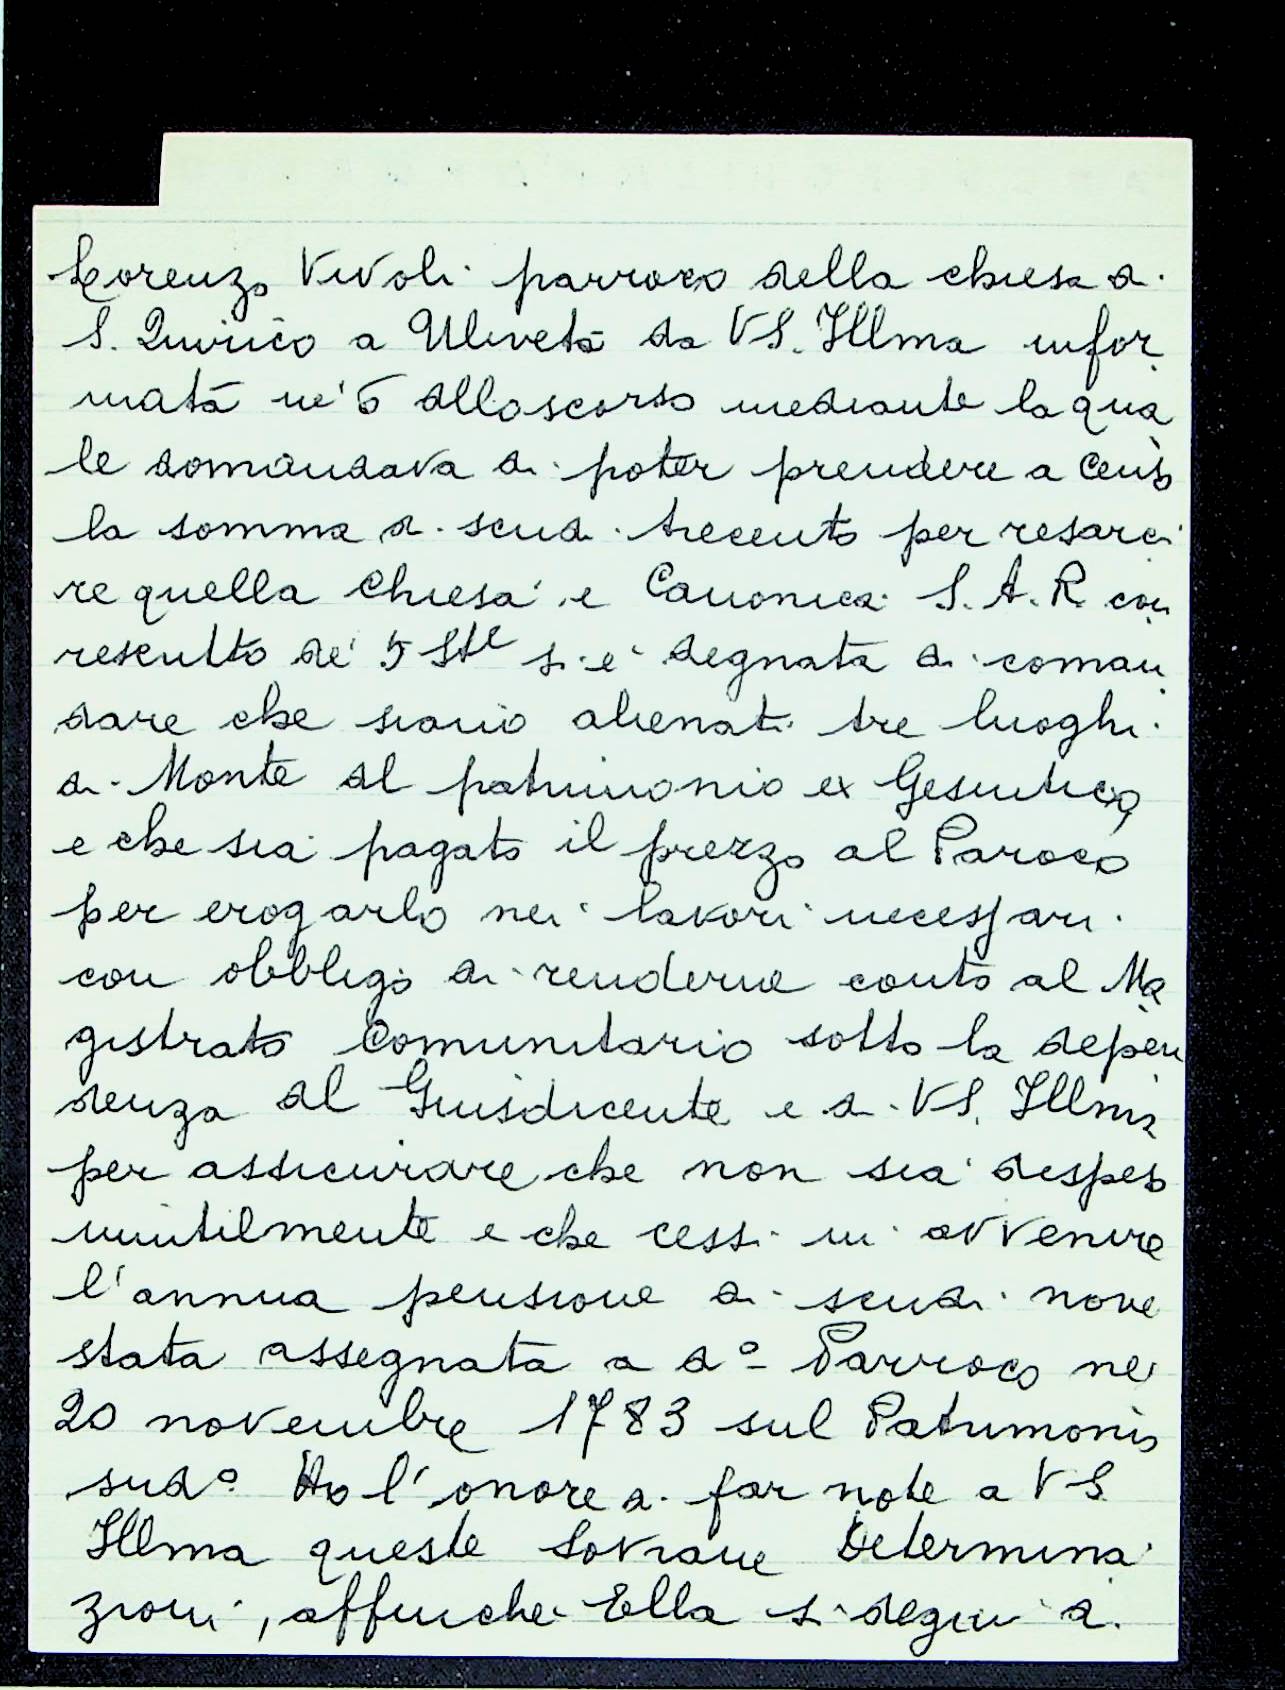 Lorenzo Vivoli parroco della chiesa di
S. Quirico a Uliveta da VS. Illma infor
mata ne' 6 dello scorso mediante la qua
le domandava di poter prendere a Censo
la somma di scudi trecento per resarci
re quella Chiesa e Canonica S. A. R. con
rescritto de' 5 Stte si è degnata di coman
dare che siano alienati tre luoghi
di Monte del patrimonio ex Gesuitico,
e che sia pagato il prezzo al Paroco
per erogarlo nei lavori necessari
con obbligo di renderne conto al Ma
gistrato Comunitario sotto la depen
denza del Giusdicente e di VS. Illma
per assicurare che non sia disperso
inutilmente e che cessi in avvenire
l'annua pensione di scudi nove
stata assegnata a do Parroco nei
20 novembre 1783 sul Patrimonio
sudo Ho l'onore di far note a VS
Illma queste Sovrane determina
zioni, affinche Ella si degni di